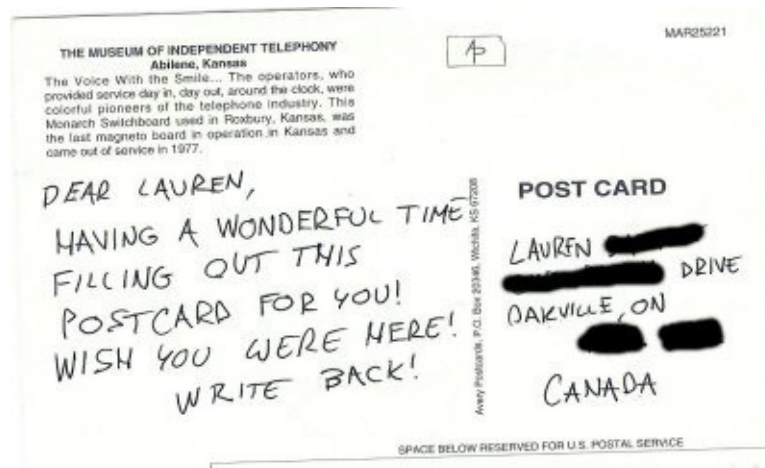 THE MUSEUM OF INDEPENDENT TELEPHONY
Abilene, Kansas
The Voice With the Smile... The operators, who
provided service day in, day out, around the clock, were
colorful pioneers of the telephone industry. This
Monarch Switchboard used in Roxbury, Kansas, was
the last magneto board in operation in Kansas and
came out of service in 1977.
MAR25221
DEAR LAUREN,
HAVING A WONDERFUL TIME
FILLING OUT THIS
POSTCARD FOR YOU!
WISH YOU WERE HERE!
WRITE BACK!
Avery Postcards, P.O. Box 20346, Wichita, KS 67208
POST CARD
LAUREN
DRIVE
OAKVILLE, ON
CANADA
SPACE BELOW RESERVED FOR U.S. POSTAL SERVICE